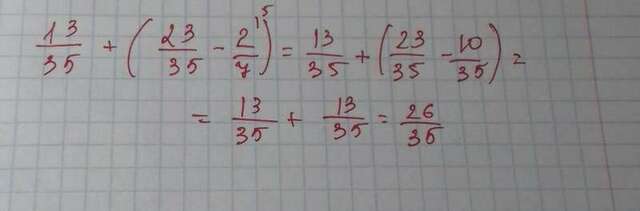 13/35 + (23/35 - 2/7 \5) = 13/35 + (23/35 - 10/35) =
= 13/35 + 13/35 = 26/35